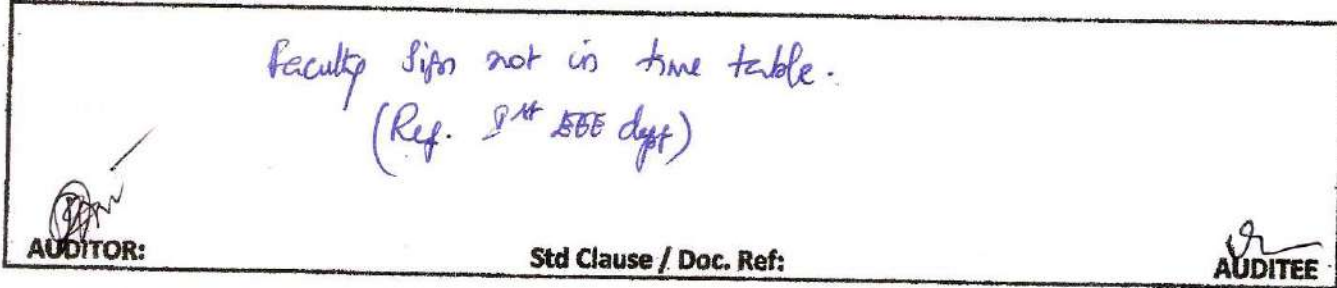 Faculty Sign not in time table.
(Ref. Ist EEE dept)
AUDITOR:
Std Clause / Doc. Ref:
AUDITEE